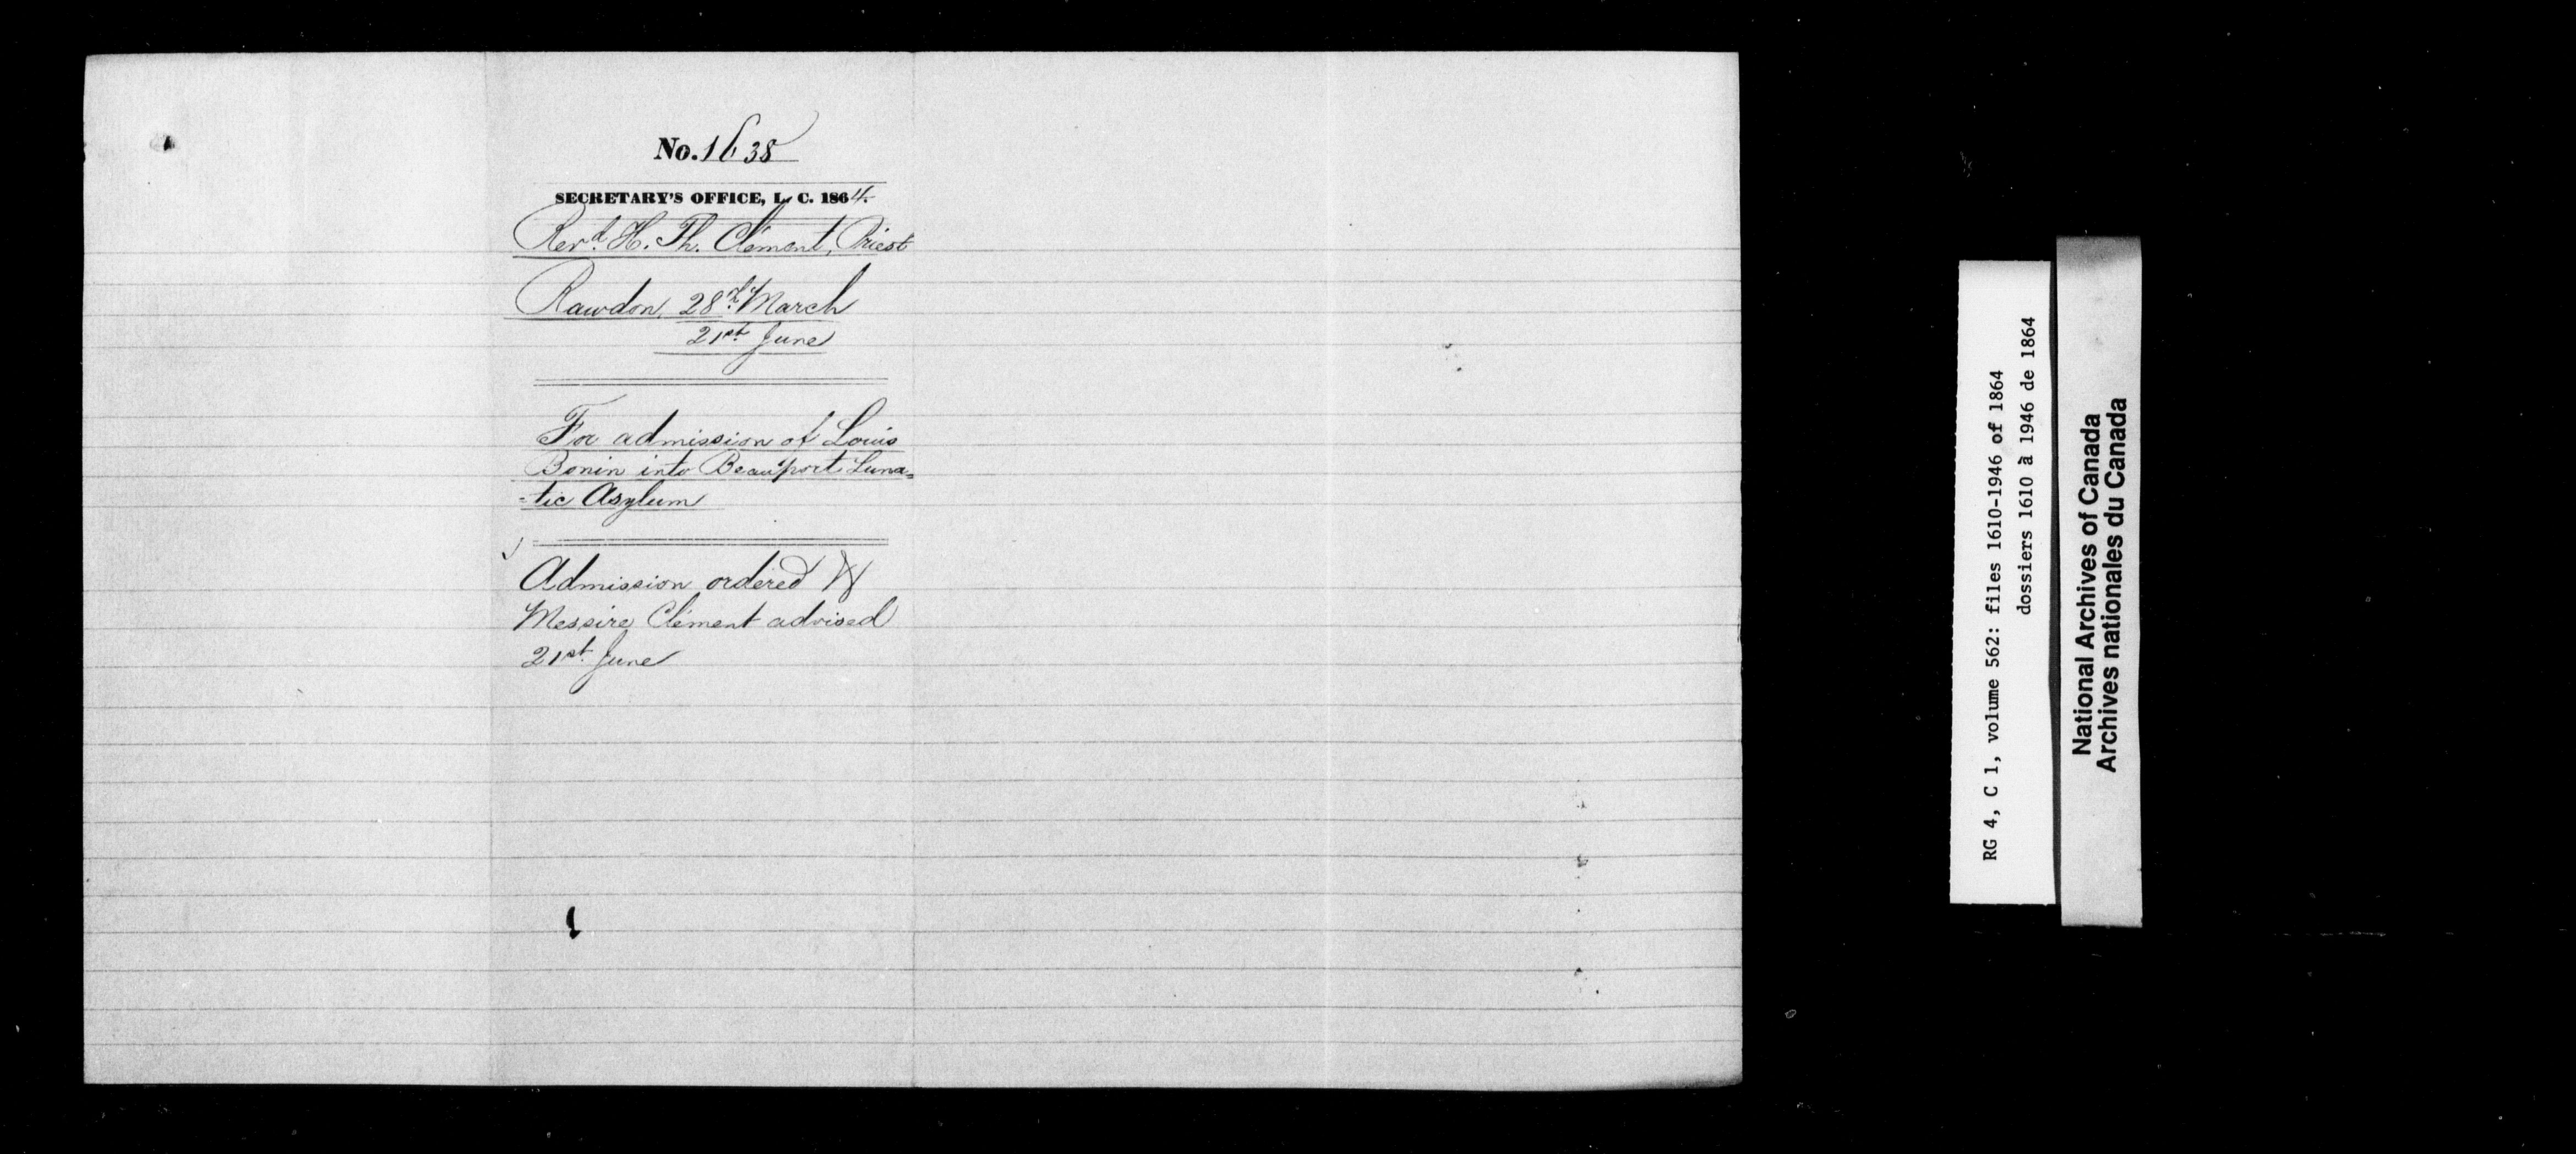 No. 1638
SECRETARY'S OFFICE, L. C. 1864.
Revd. H. Th. Clément, Priest
Rawdon, 28th March
21st June
For admission of Louis
Bonin into Beauport Luna=
-tic Asylum
Admission ordered &
Messire Clément advised
21st June
RG 4, C 1, volume 562: files 1610-1946 of 1864
dossiers 1610 à 1946 de 1864
National Archives of Canada
Archives nationales du Canada